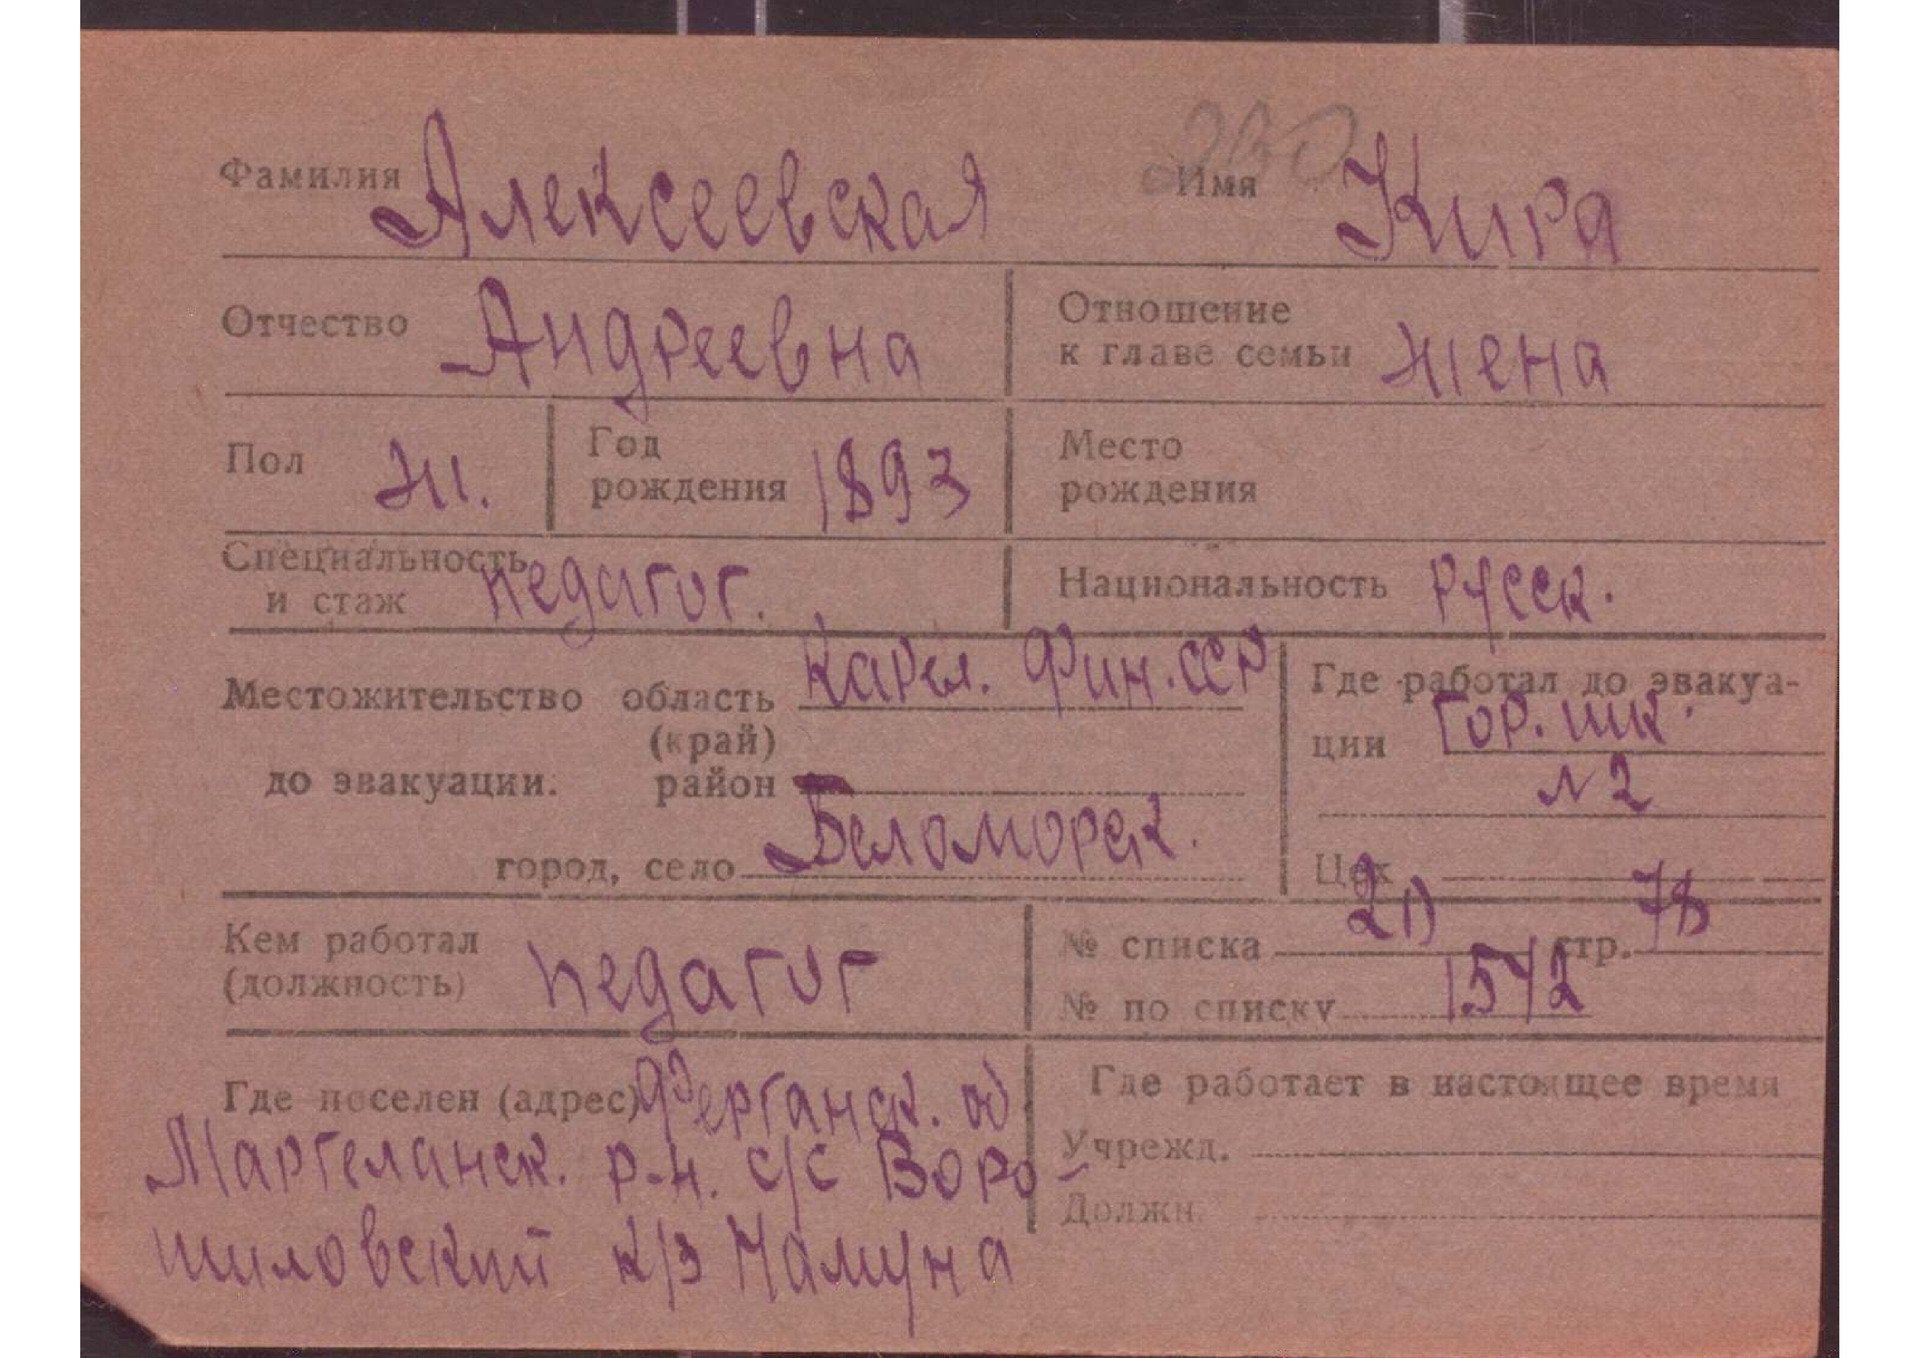 230
Фамилия Алексеевская Имя Кира
Отчество Андреевна Отношение к главе семьи жена
Пол ж. Год рождения 1893 Место рождения
Специальность и стаж педагог. Национальность русск.
Местожительство до эвакуации. область (край) Карел. Фин. ССР
район
город, село Беломорск.
Где работал до эвакуации Гор. шк. N 2
Цех
Кем работал (должность) педагог
№ списка стр. 78
№ по списку 1572
Где поселен (адрес) Ферганск. об
Маргеланск. р-н. с/с Воро-
шиловский к/з Намуна
Где работает в настоящее время
Учрежд.
Должн.